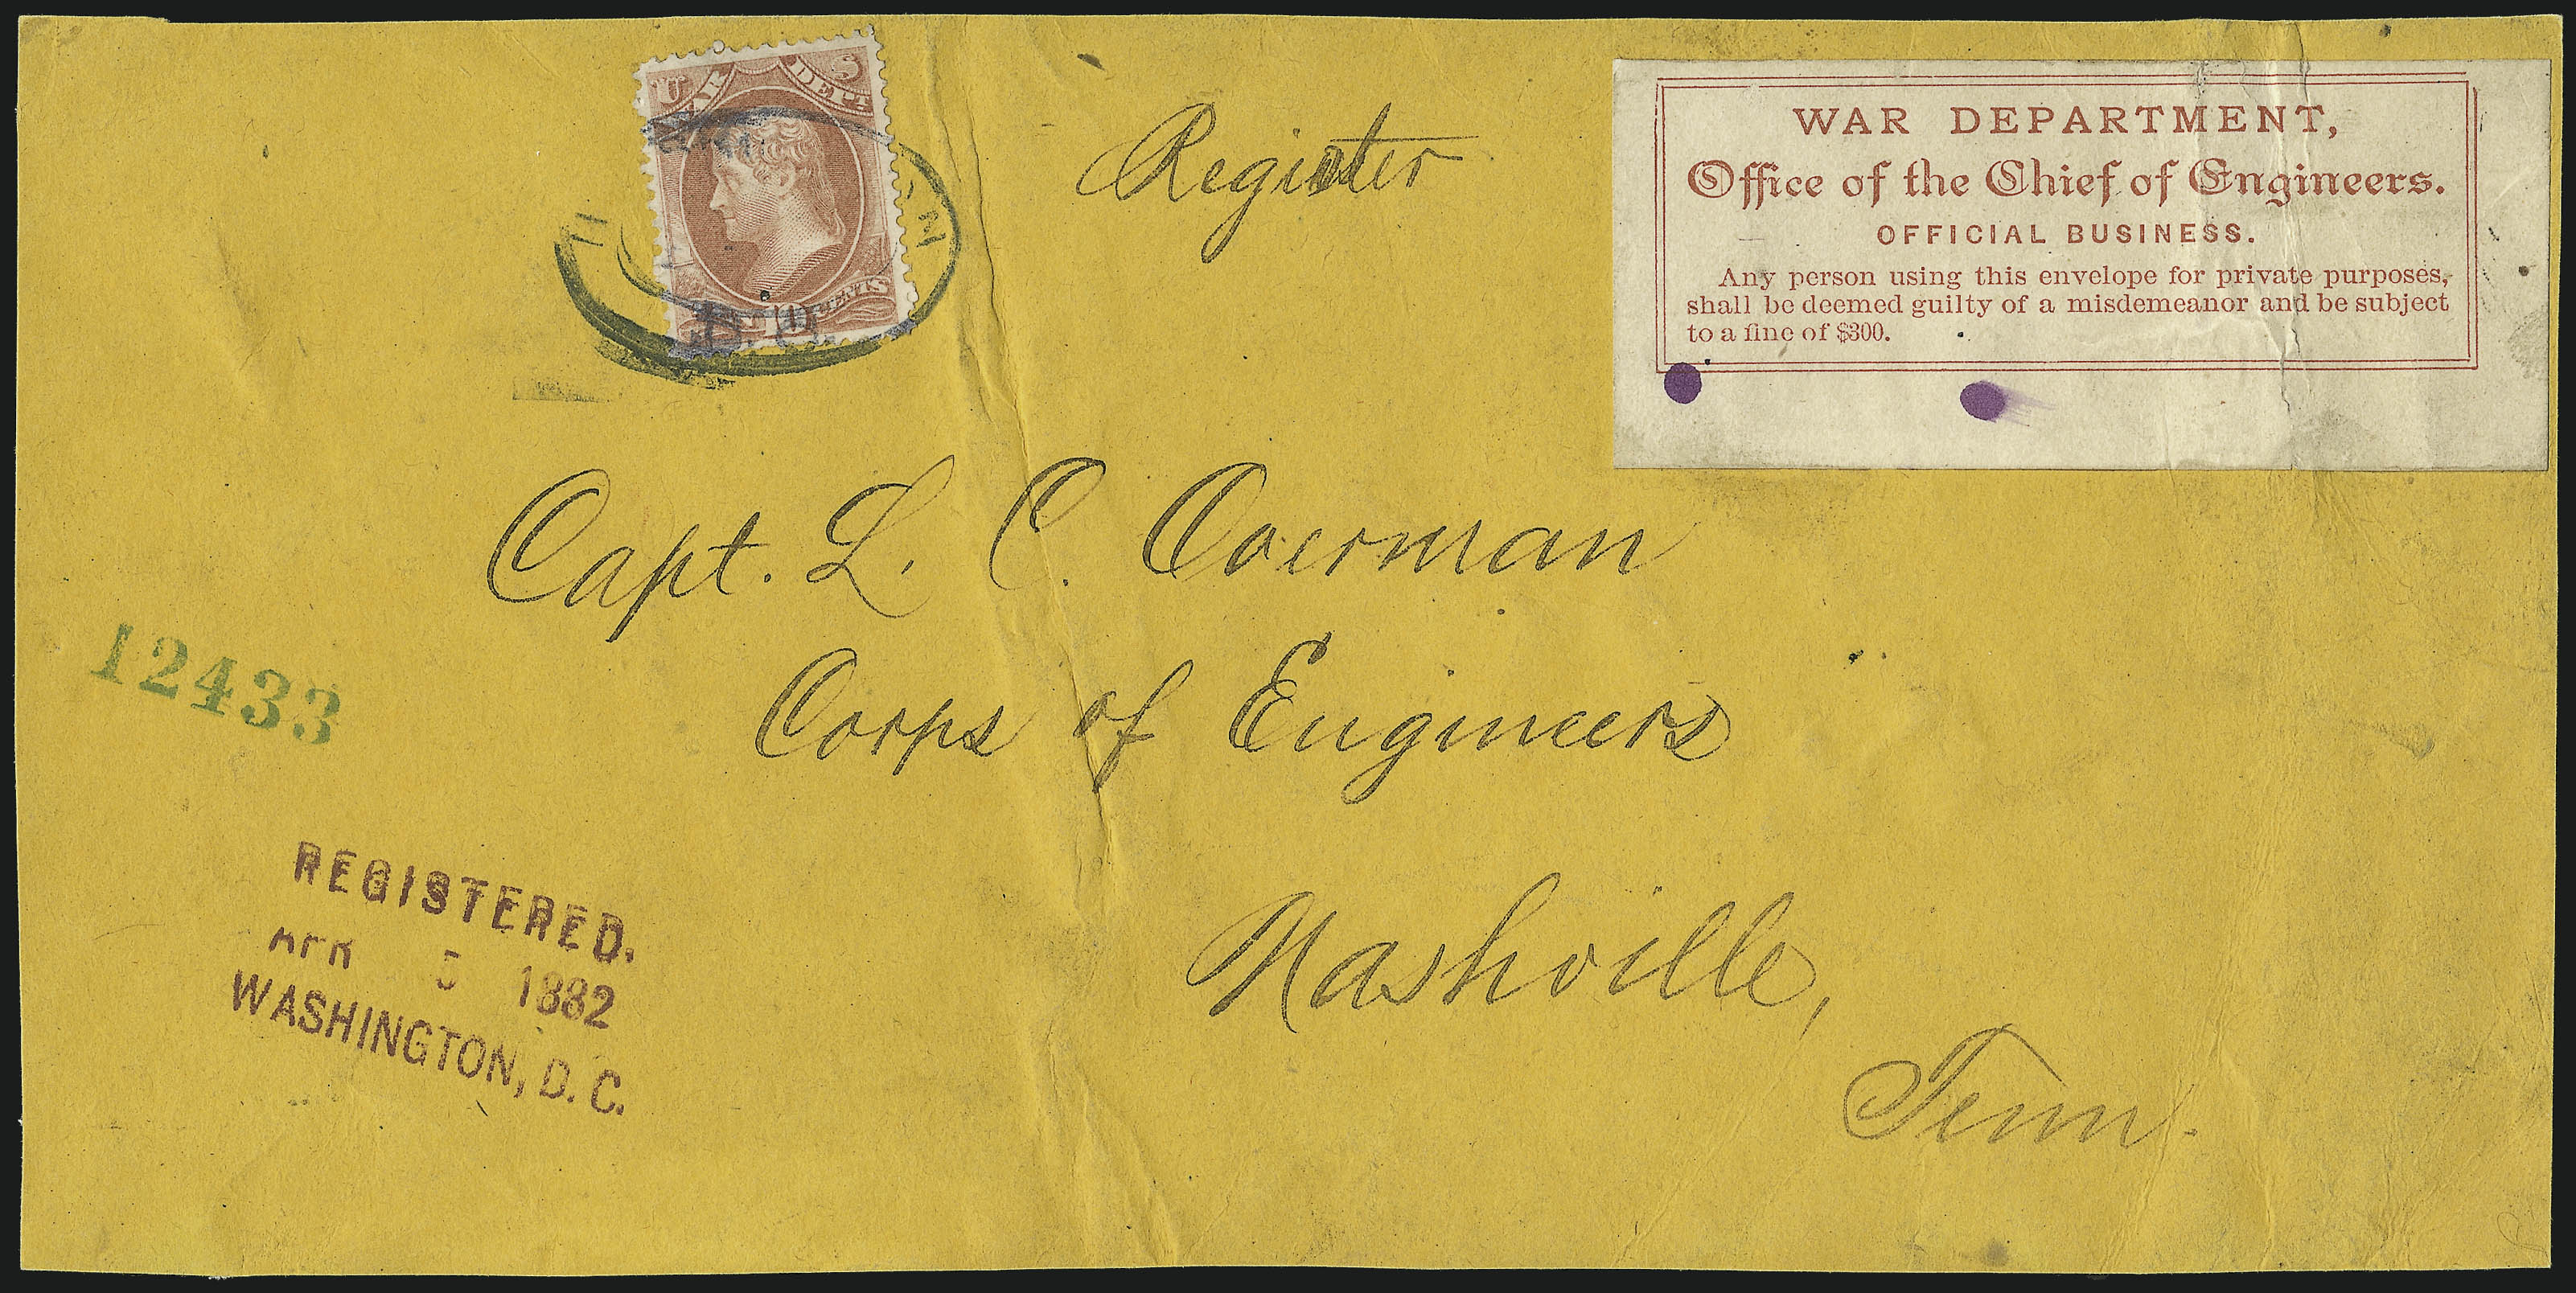 U S
WAR DEPT
CENTS
Register
WAR DEPARTMENT,
Office of the Chief of Engineers.
OFFICIAL BUSINESS.
Any person using this envelope for private purposes,
shall be deemed guilty of a misdemeanor and be subject
to a fine of $300.
Capt. L. C. Overman
Corps of Engineers
Nashville,
Tenn.
12433
REGISTERED.
APR 5 1882
WASHINGTON, D. C.